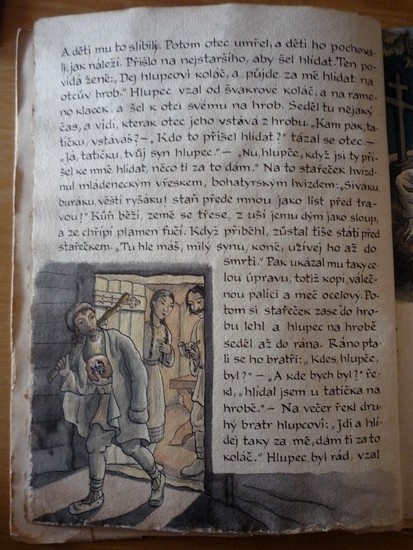 A děti mu to slíbily. Potom otec umřel, a děti ho pochova-
li, jak náleží. Přišlo na nejstaršího, aby šel hlídat. Ten po-
vídá ženě: „Dej hlupcovi koláč, a půjde za mě hlídat na
otcův hrob.“ Hlupec vzal od švakrové koláč, a na rame-
no klacek, a šel k otci svému na hrob. Seděl tu nějaký
čas, a vidí, kterak otec jeho vstává z hrobu. „Kam pak, ta-
tíčku, vstáváš?“ — „Kdo to přišel hlídat?“ tázal se otec —
„Já, tatíčku, tvůj syn hlupec.“ — „Nu, hlupče, když jsi ty při-
šel ke mně hlídat, něco ti za to dám.“ Na to stařeček hvízd-
nul mládeneckým vřeskem, bohatýrským hvizdem: „Siváku,
buráku, věští ryšáku! staň přede mnou jako list před tra-
vou!“ Kůň běží, země se třese, z uší jemu dým jako sloup,
a ze chřípí plamen fučí. Když přiběhl, zůstal tiše státi před
stařečkem. „Tu hle máš, milý synu, koně, užívej ho až do
smrti.“ Pak ukázal mu taky ce-
lou úpravu, totiž kopí, váleč-
nou palici a meč ocelový. Po-
tom si stařeček zase do hro-
bu lehl a hlupec na hrobě
seděl až do rána. Ráno pta-
li se ho bratři: „Kdes, hlupče,
byl?“ — „A kde bych byl?“ ře-
kl, „hlídal jsem u tatíčka na
hrobě.“ — Na večer řekl dru-
hý bratr hlupcovi: „Jdi a hlí-
dej taky za mě, dám ti za to
koláč.“ Hlupec byl rád, vzal